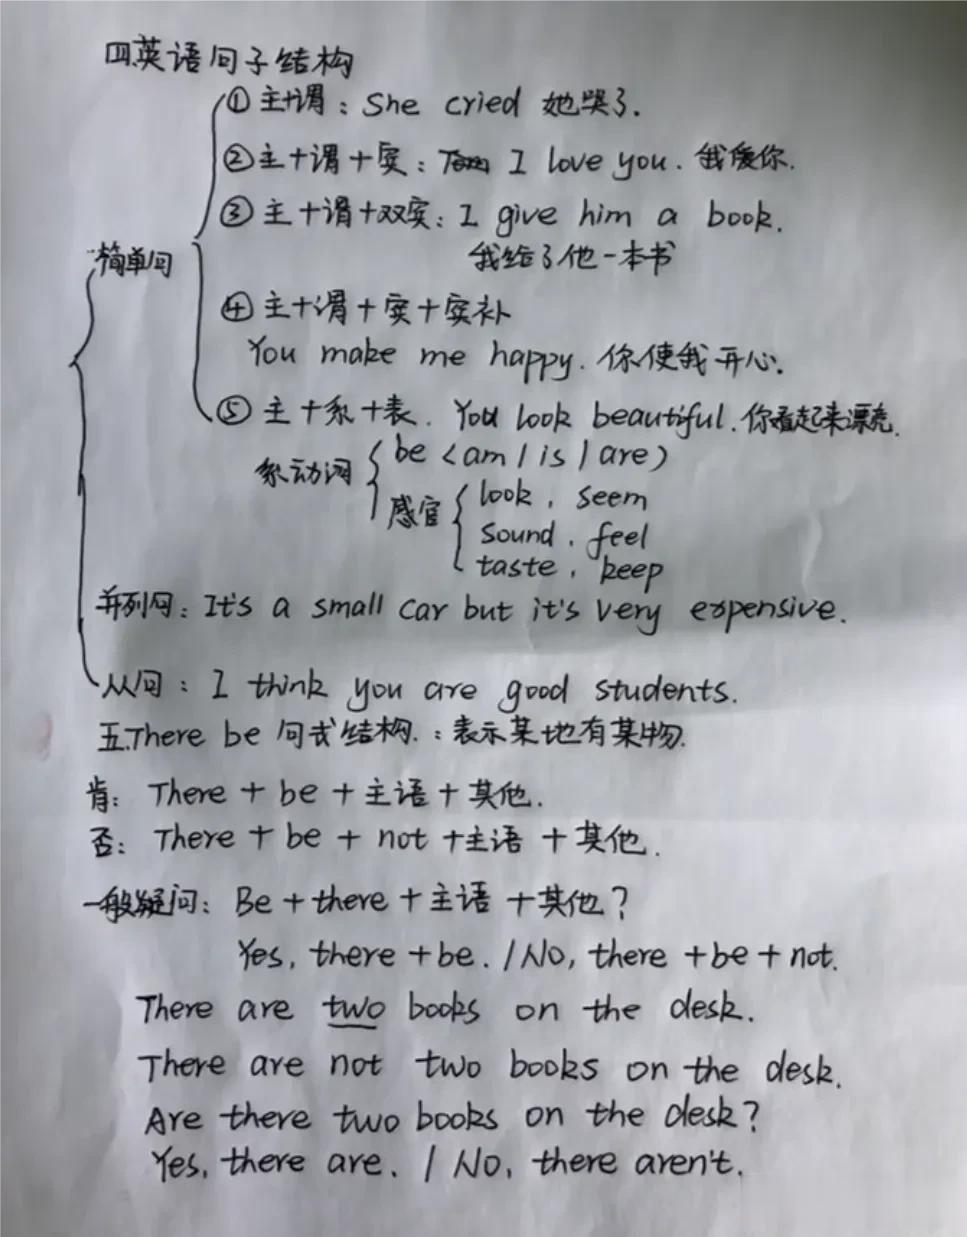 四.英语句子结构
① 主+谓：She cried 她哭了.
② 主+谓+宾：I love you. 我爱你.
③ 主+谓+双宾：I give him a book.
我给了他一本书
简单句
④ 主+谓+宾+宾补
You make me happy. 你使我开心.
⑤ 主+系+表. You look beautiful. 你看起来漂亮.
系动词 be <am / is / are)
感官 look , seem
sound , feel
taste , keep
并列句：It's a small car but it's very expensive.
从句：I think you are good students.
五.There be 句式结构.：表示某地有某物.
肯：There + be + 主语 + 其他.
否：There + be + not + 主语 + 其他.
一般疑问：Be + there + 主语 + 其他?
Yes, there + be. / No, there + be + not.
There are two books on the desk.
There are not two books on the desk.
Are there two books on the desk?
Yes, there are. / No, there aren't.